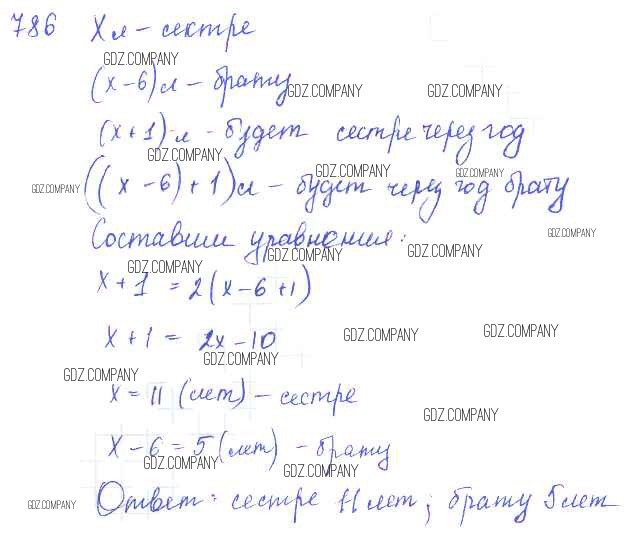 786 X л - сестре
GDZ.COMPANY
(x-6) л - брату
GDZ.COMPANY GDZ.COMPANY
(x+1) л - будет сестре через год
GDZ.COMPANY GDZ.COMPANY GDZ.COMPANY
GDZ.COMPANY ((x-6)+1) л - будет через год брату
Составим уравнения: GDZ.COMPANY
GDZ.COMPANY GDZ.COMPANY GDZ.COMPANY
x+1 = 2(x-6+1)
x+1 = 2x-10 GDZ.COMPANY GDZ.COMPANY
GDZ.COMPANY
GDZ.COMPANY
x = 11 (лет) - сестре
GDZ.COMPANY
x-6 = 5 (лет) - брату
GDZ.COMPANY GDZ.COMPANY
GDZ.COMPANY Ответ: сестре 11 лет; брату 5 лет